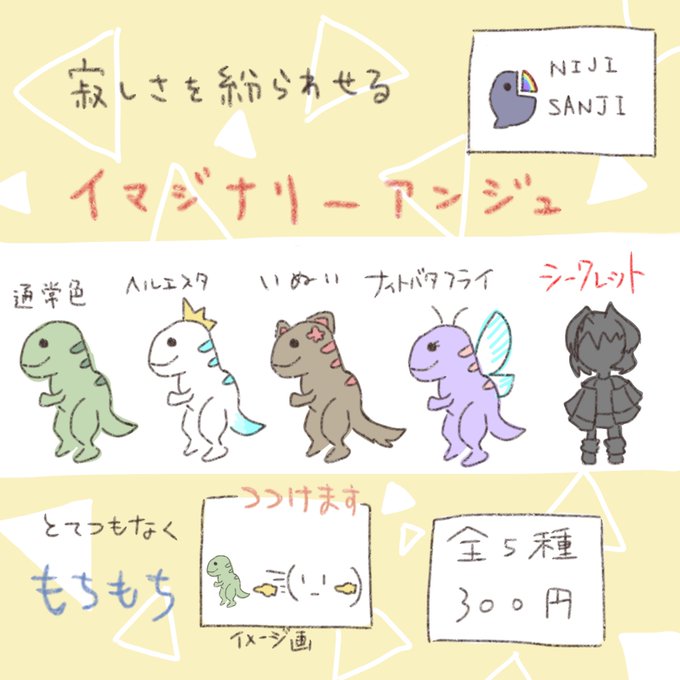 寂しさを紛らわせる
NIJI
SANJI
イマジナリーアンジュ
通常色
ヘルエスタ
いぬい
ナイトバタフライ
シークレット
とてつもなく
もちもち
つつけます
イメージ画
全5種
300円